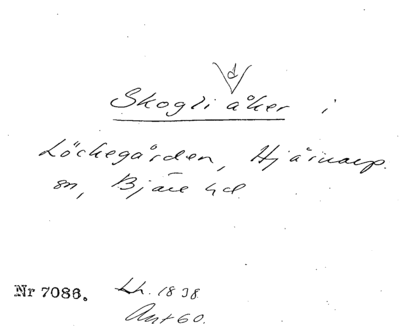 d
Skogli åker i
Löckegården, Hjärnarp
sn, Bjäre hd
Nr 7086. Lh. 1838
Ant 60.